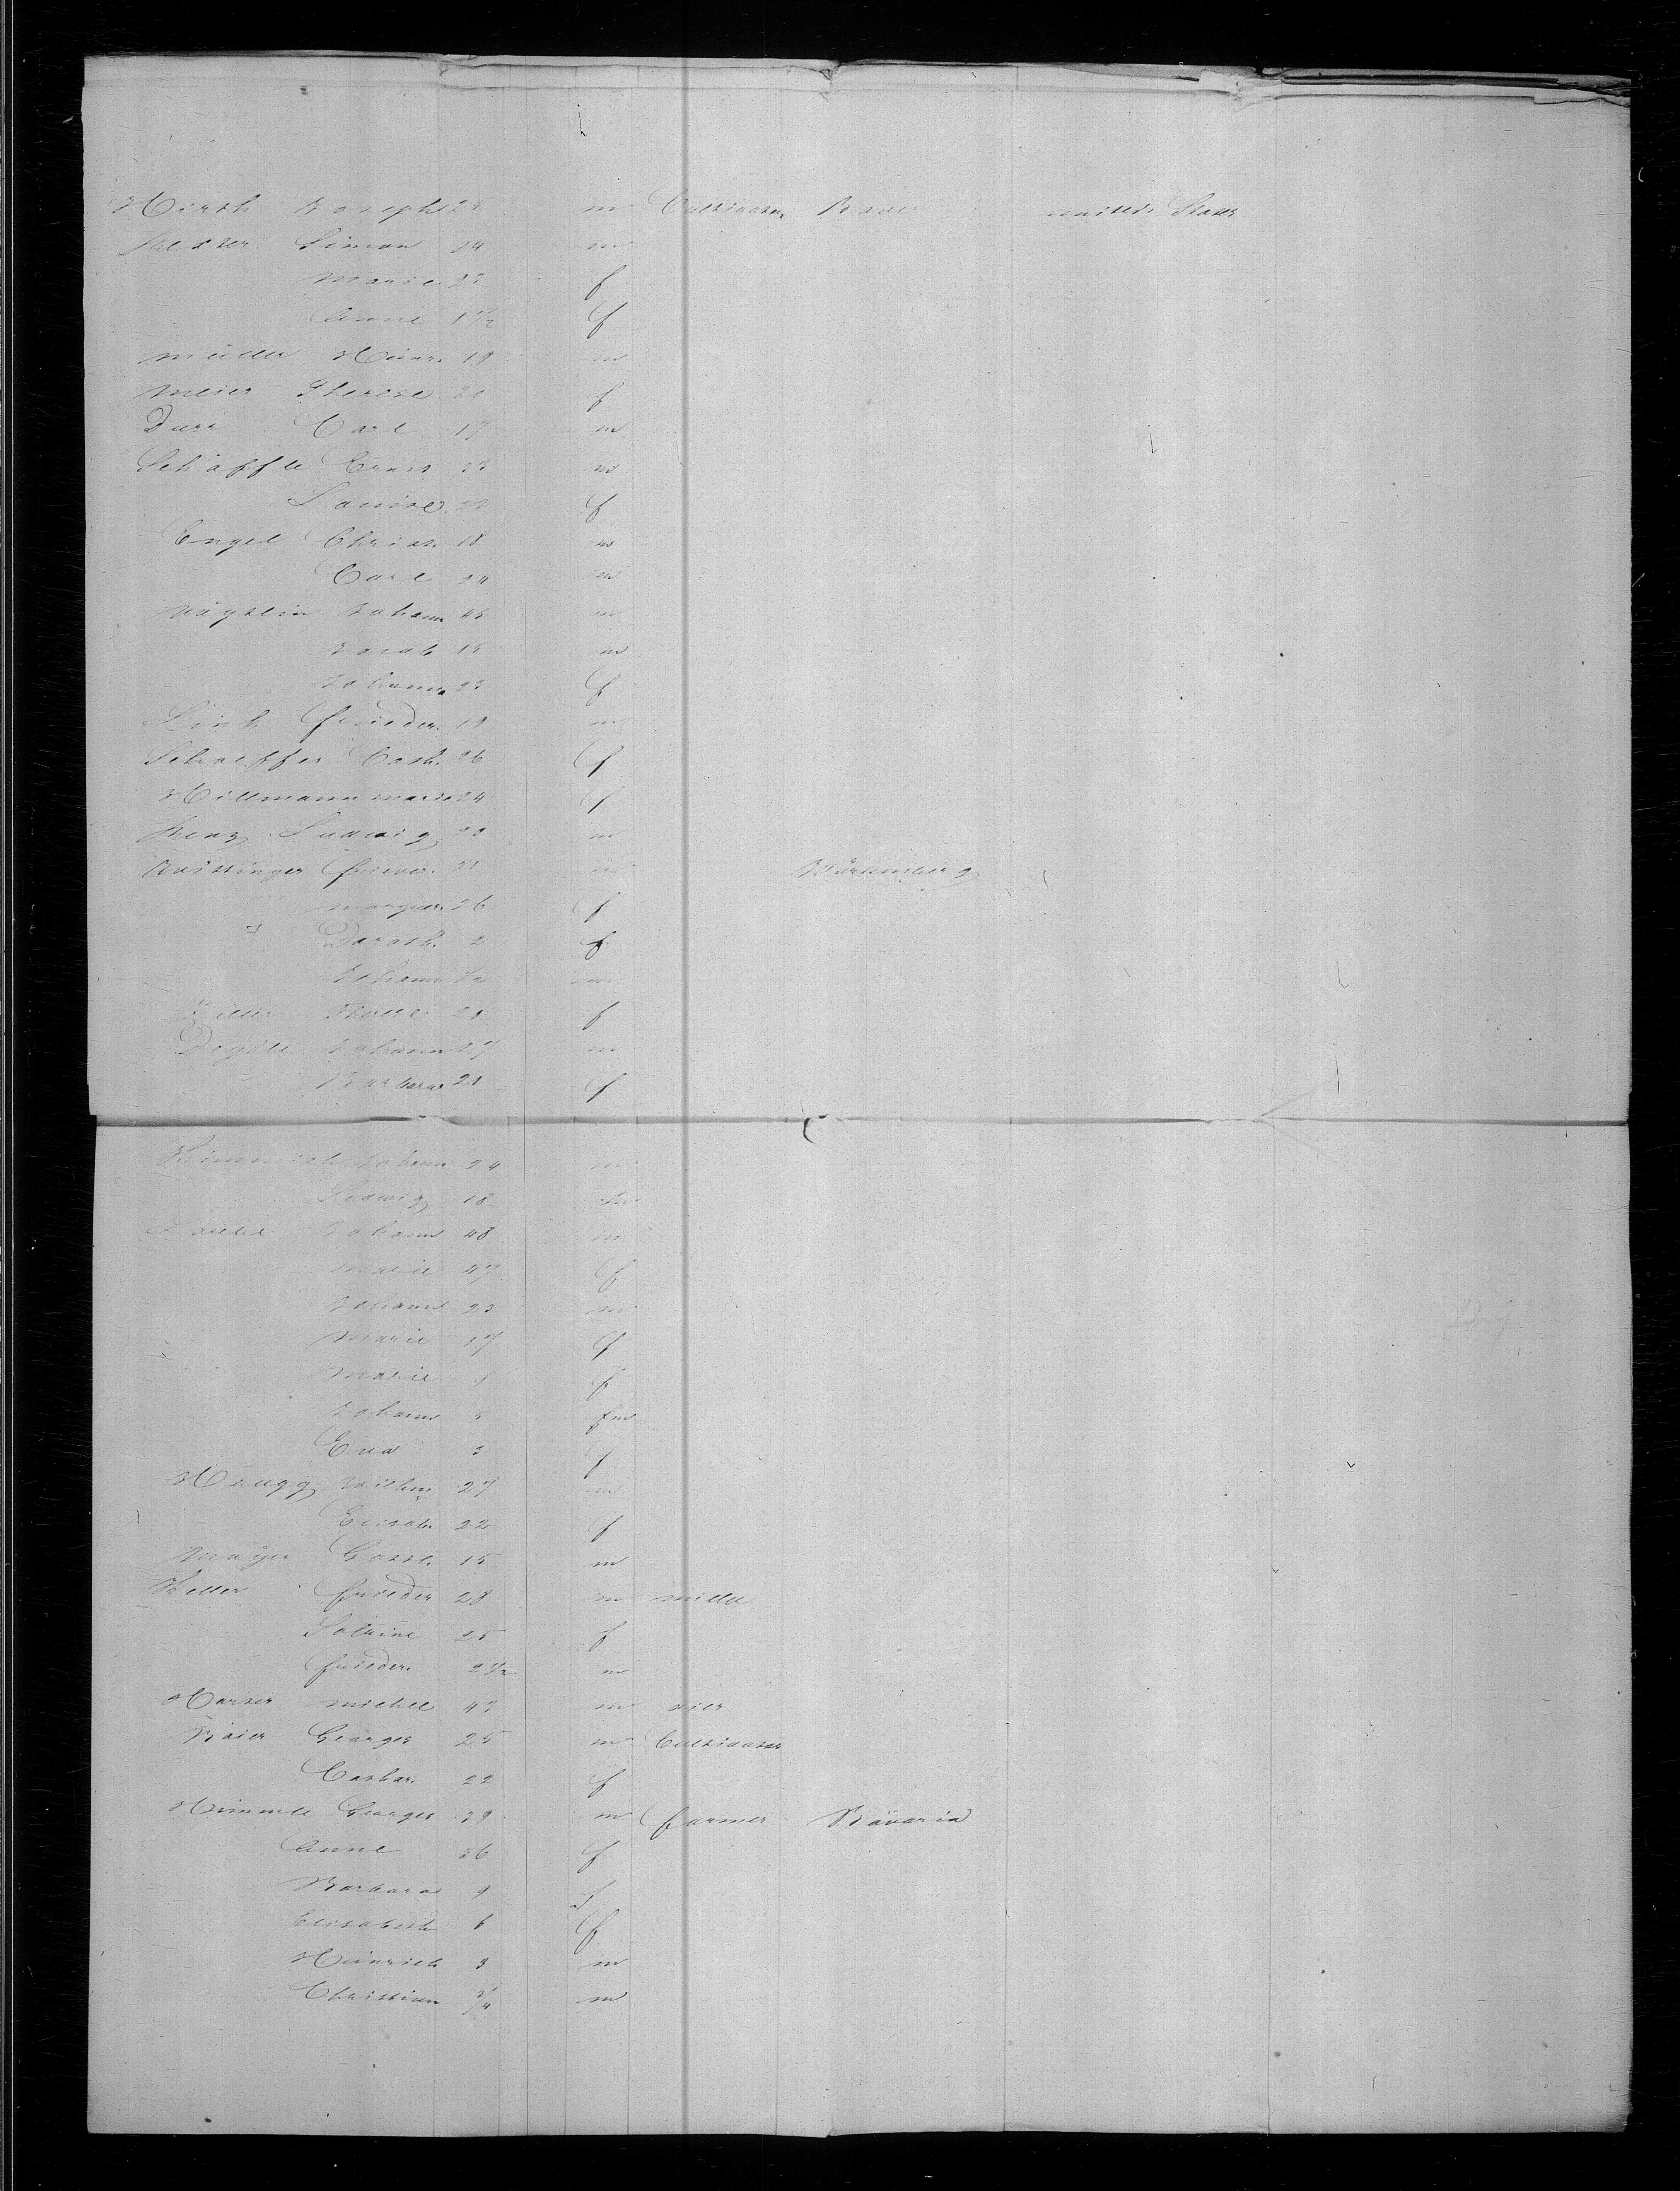 Hirth Joseph 25 m Cultivator Bade united States
Simon 24 m
Marie 25 f
Anne 1 1/2 f
Müller Heinr. 19 m
Meier Therese 20 f
Durr Carl 17 m
Schäffle Ernst 33 m
Louise 22 f
Engel Christ. 18 m
Carl 24 m
Nägelin Johann 45 m
Jacob 15 m
Johanna 23 f
Link Frieder. 19 m
Schaeffer Cath. 26 f
Hillmann Marie 24 f
Renz Ludwig 20 m
Frieder. 31 m Würtemberg
Marguer. 26 f
Doroth. 2 f
Johann 1/2 m
f
Johann 27 m
Barbara 21 f
Johann 24 m
Ludwig 18 m
Johann 48 m
Marie 47 f
Johann 23 m
Marie 17 f
Marie 9 f
Johann 5 fm
Eva 3 f
Haugg Wilhm 27 m
Elisab. 22 f
Mayer Gottl. 15 m
Keller Frieder 28 m miller
Salvine 25 f
Frieder. 2 1/2 m
Michel 47 m
Baier Georges 25 m Cultivator
Cathar. 22 f
Himmele Georges 39 m farmer Bavaria
Anne 36 f
Barbara 9 f
Elisabeth 6 f
Heinrich 3 m
Christian 3/4 m